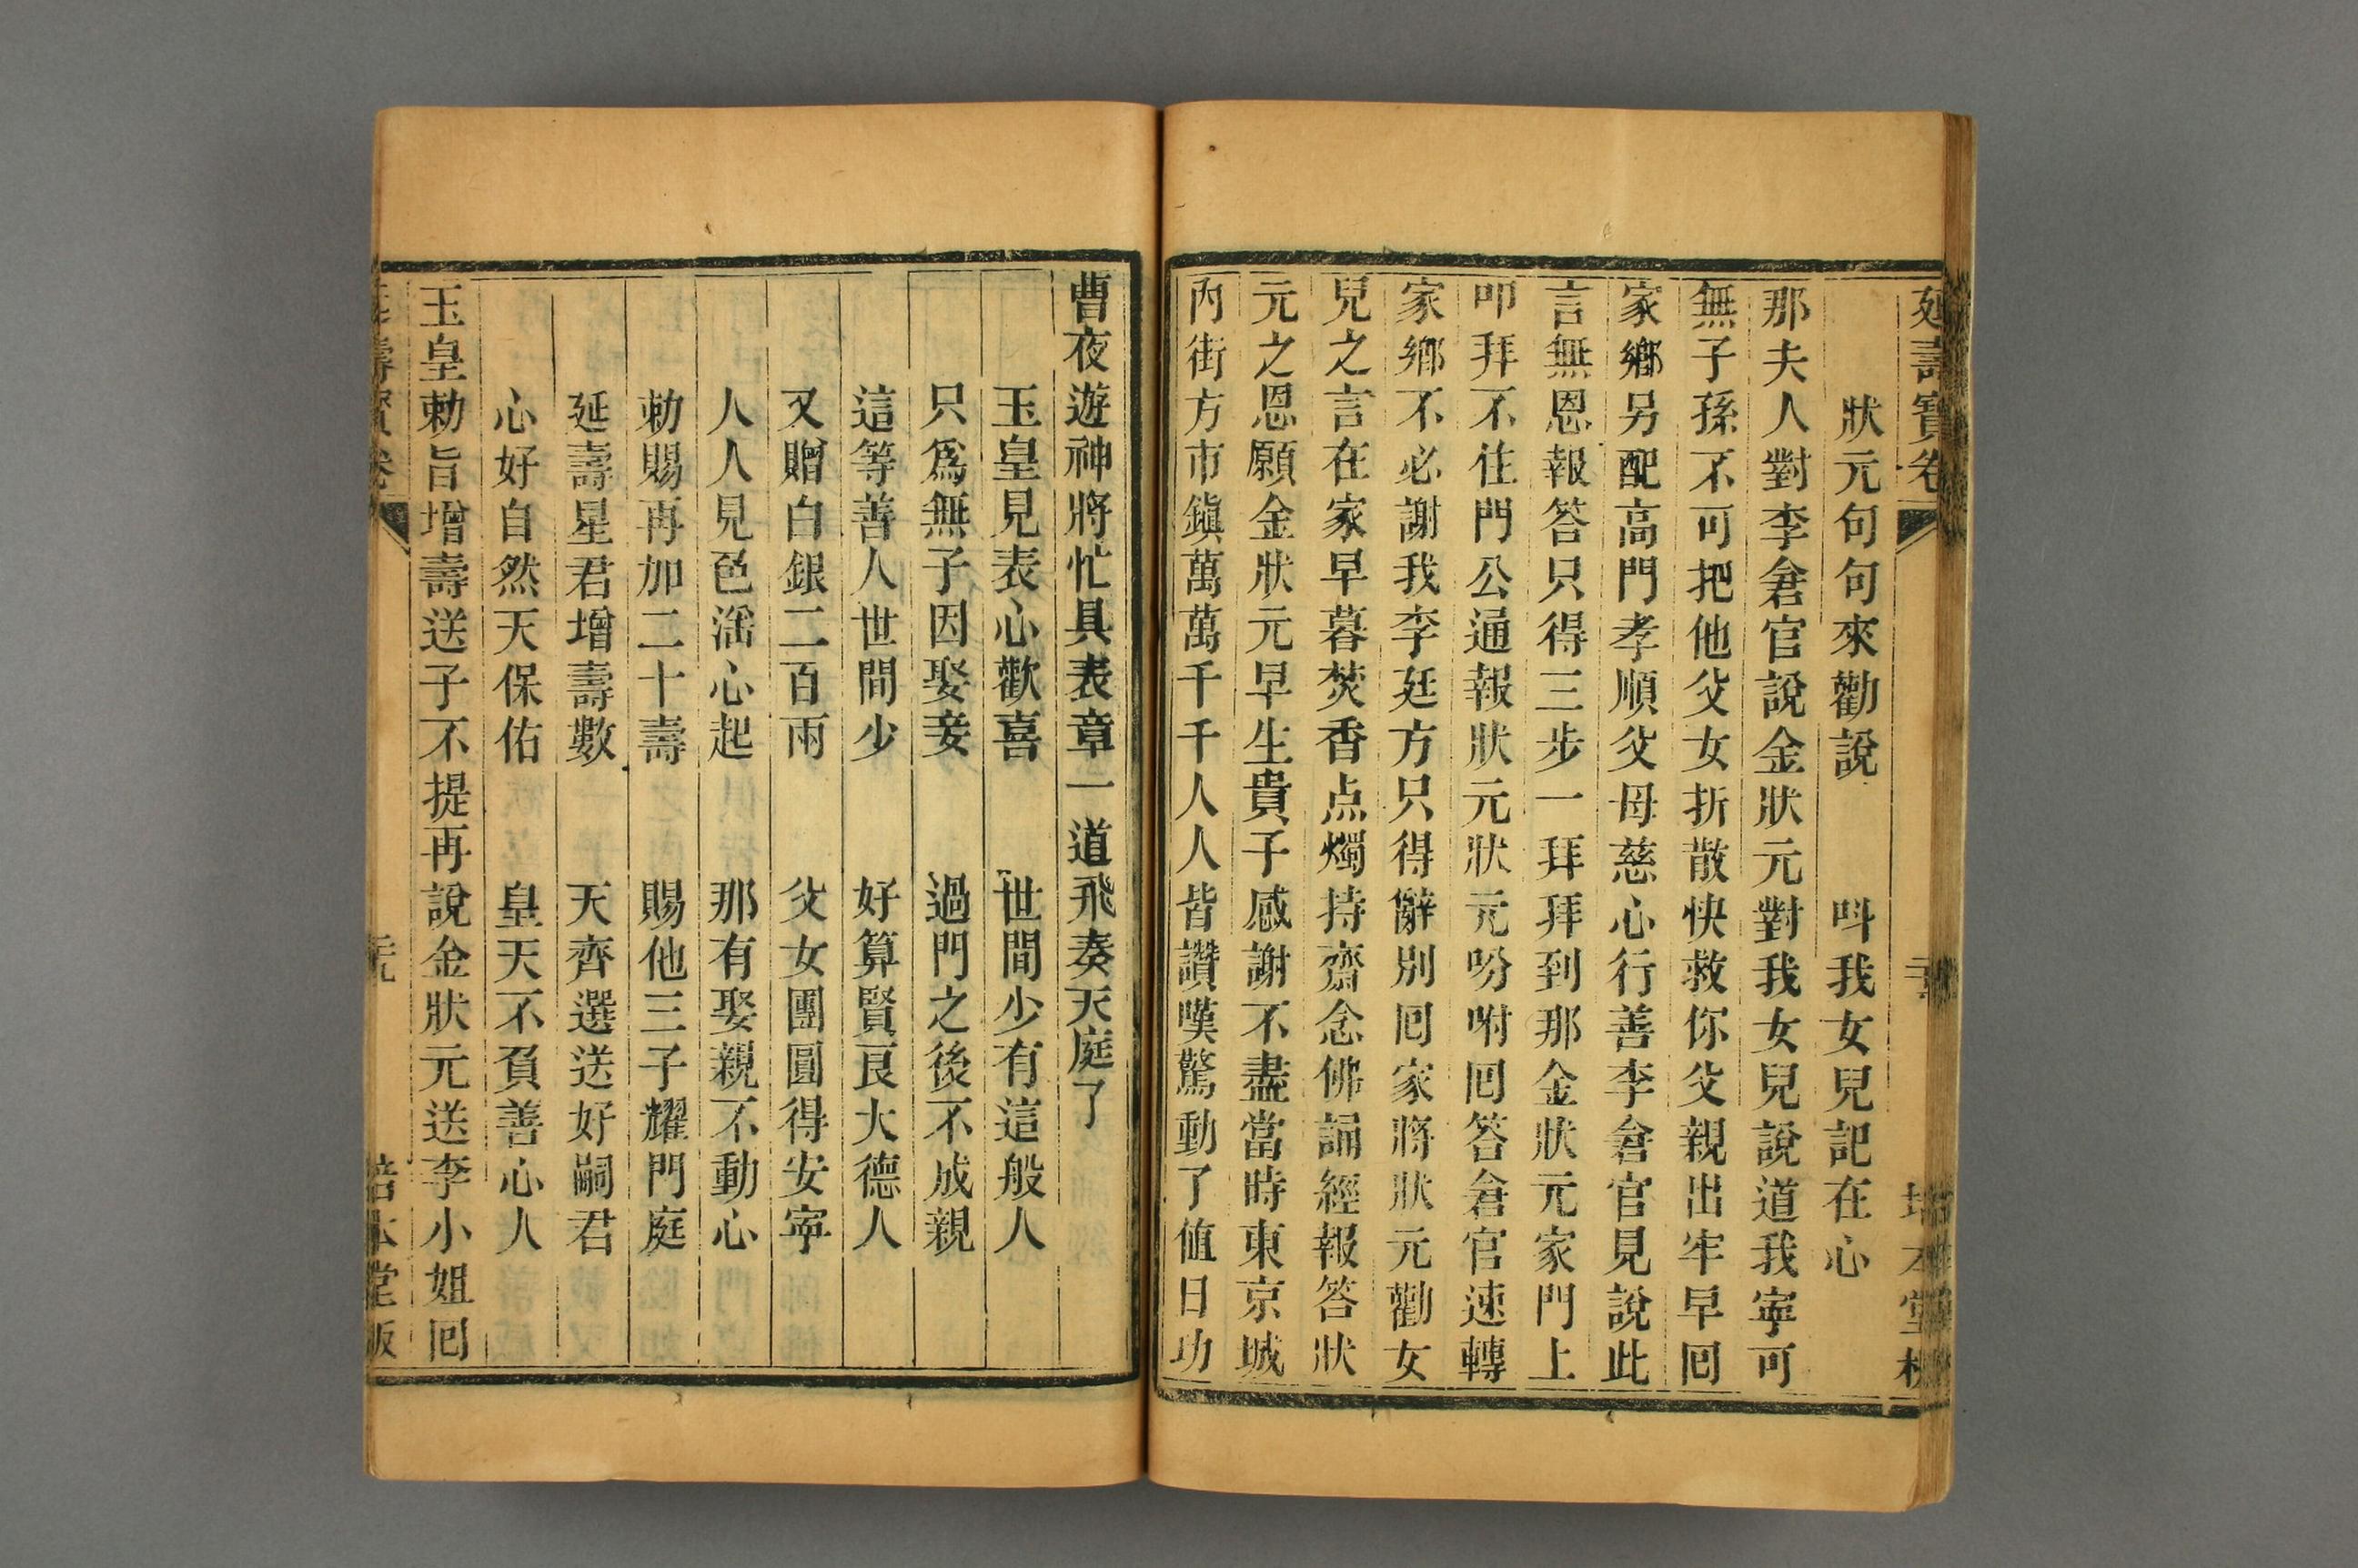 延壽寶卷
狀元句句來勸說 呌我女兒記在心
那夫人對李倉官說金狀元對我女兒說道我寧可
無子孫不可把他父女折散快救你父親出牢早囘
家鄉另配高門孝順父母慈心行善李倉官見說此
言無恩報答只得三步一拜拜到那金狀元家門上
叩拜不住門公通報狀元狀元吩咐囘答倉官速轉
家鄉不必謝我李廷方只得辭別囘家將狀元勸女
兒之言在家早暮焚香点燭持齋念佛誦經報答狀
元之恩願金狀元早生貴子感謝不盡當時東京城
內街方市鎮萬萬千千人人皆讚嘆驚動了値日功
曹夜遊神將忙具表章一道飛奏天庭了
玉皇見表心歡喜 世間少有這般人
只為無子因娶妾 過門之後不成親
這等善人世間少 好算賢良大德人
又贈白銀二百兩 父女團圓得安寧
人人見色滛心起 那有娶親不動心
勅賜再加二十壽 賜他三子耀門庭
延壽星君增壽數 天齊選送好嗣君
心好自然天保佑 皇天不負善心人
玉皇勅旨增壽送子不提再說金狀元送李小姐囘
壽寶卷
培本堂版